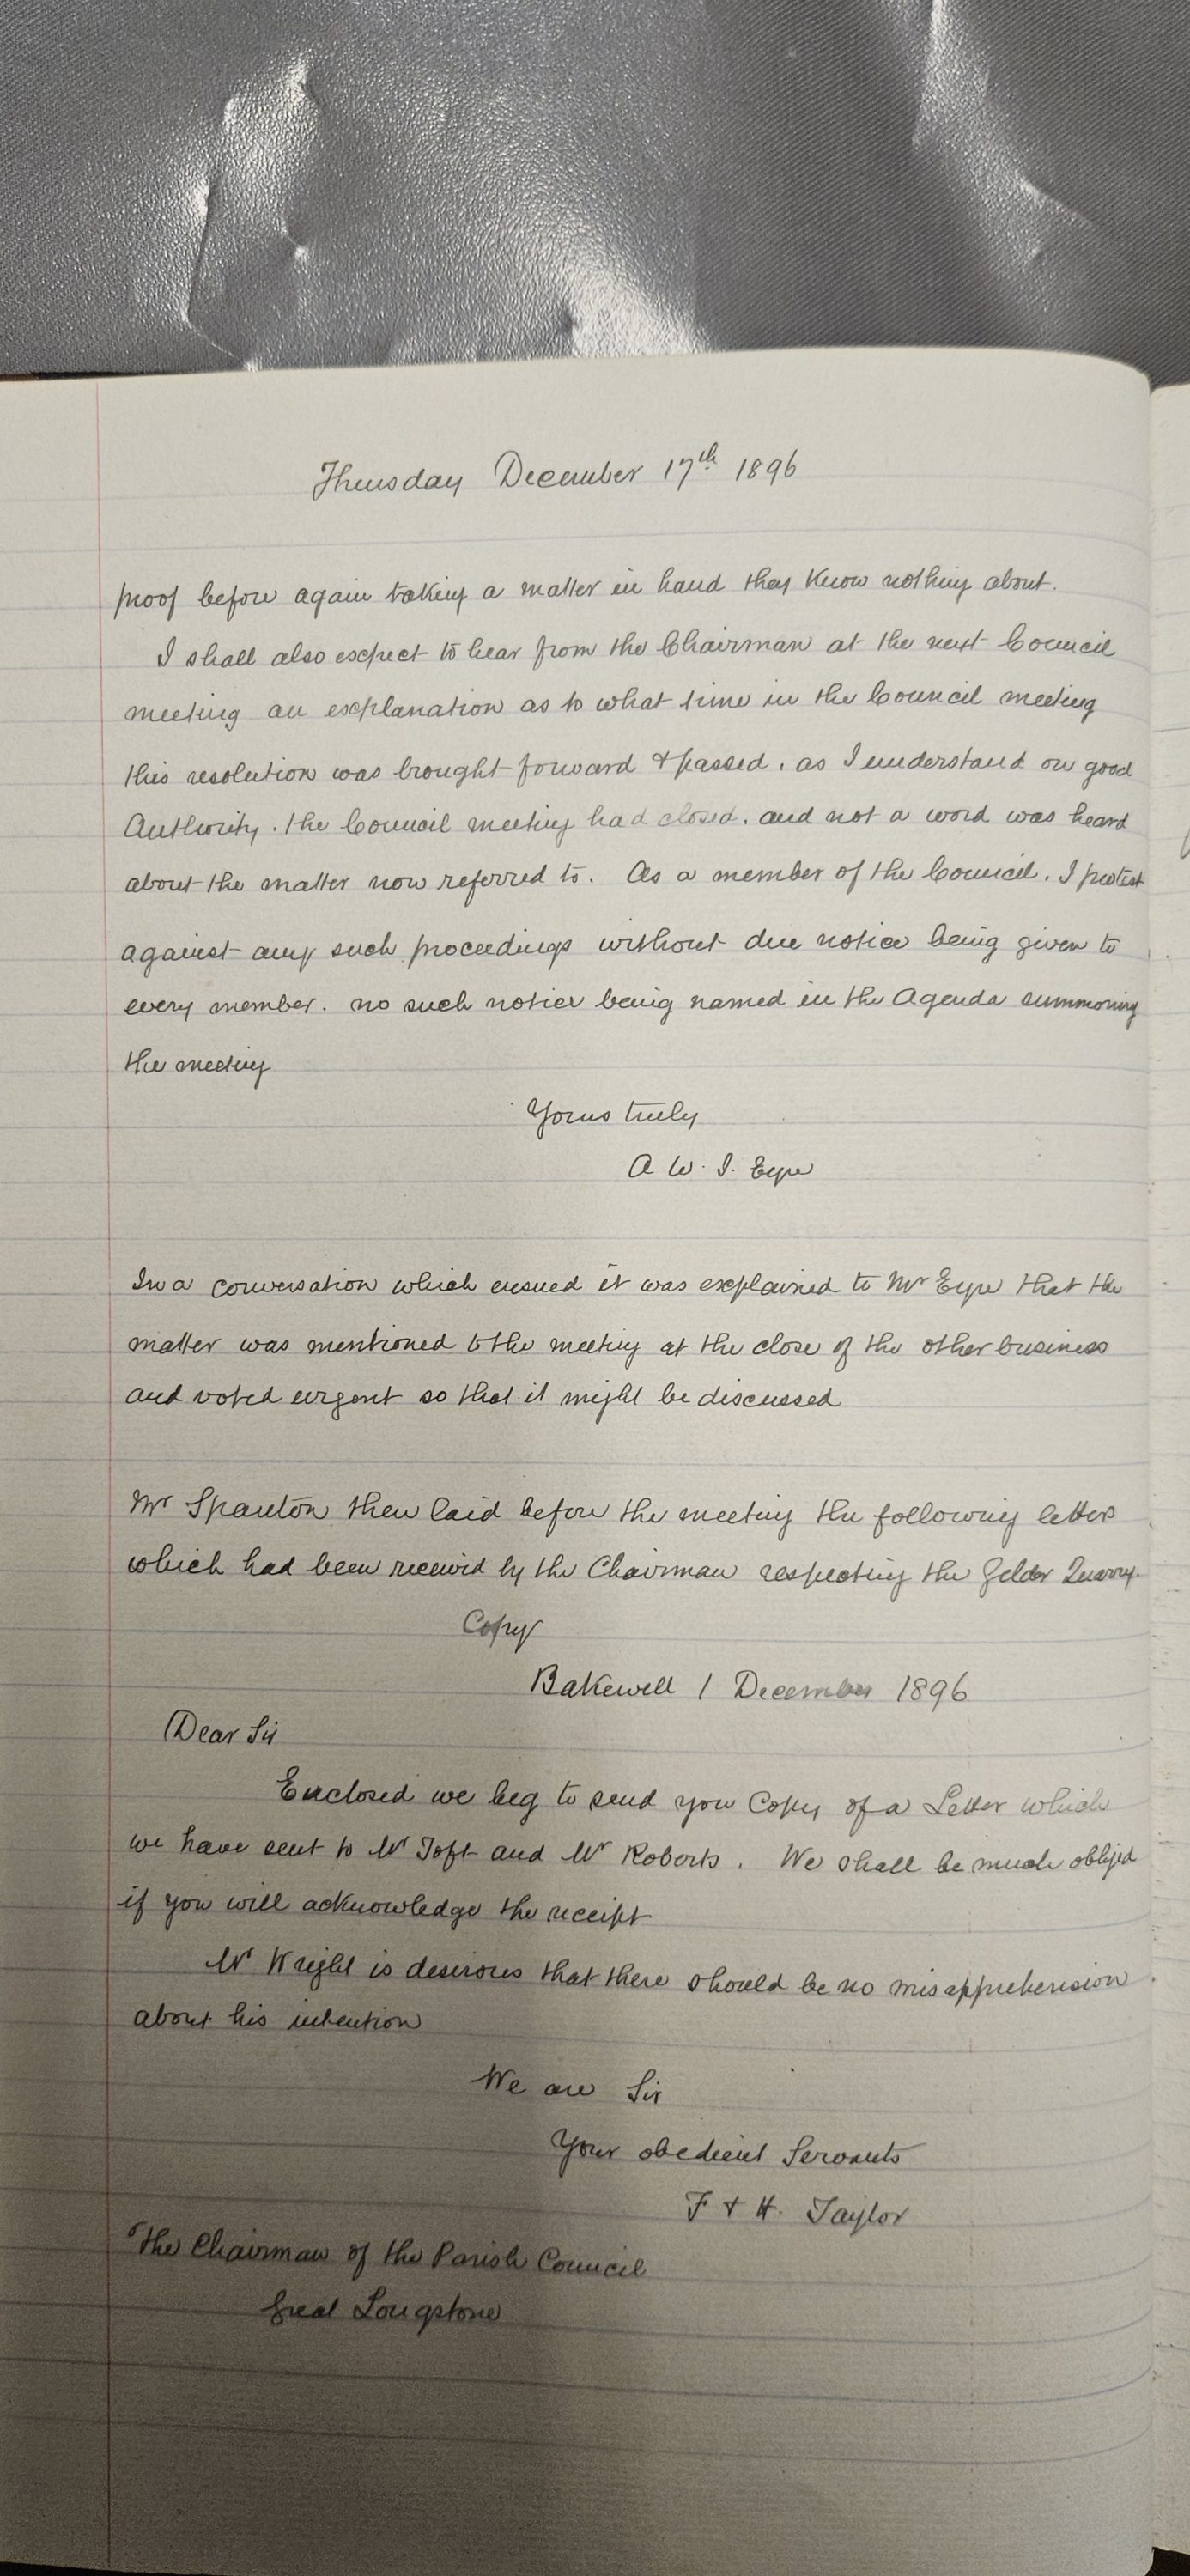 Thursday December 17th 1896
proof before again taking a matter in hand they know nothing about.
I shall also expect to hear from the Chairman at the next Council
meeting an explanation as to what time in the Council meeting
this resolution was brought forward & passed, as I understand on good
Authority. the Council meeting had closed. and not a word was heard
about the matter now referred to. As a member of the Council. I protest
against any such proceedings without due notice being given to
every member. no such notice being named in the Agenda summoning
the meeting
Yours truly
A W. I. Eyre
In a conversation which ensued it was explained to Mr Eyre that the
matter was mentioned to the meeting at the close of the other business
and voted urgent so that it might be discussed
Mr Spanton then laid before the meeting the following letter
which had been received by the Chairman respecting the Gelder Quarry.
Copy
Bakewell 1 December 1896
Dear Sir
Enclosed we beg to send you Copy of a Letter which
we have sent to Mr Toft and Mr Roberts. We shall be much obliged
if you will acknowledge the receipt
Mr Wright is desirous that there should be no misapprehension
about his intention
We are Sir
Your obedient Servants
F & H. Taylor
The Chairman of the Parish Council
Great Longstone